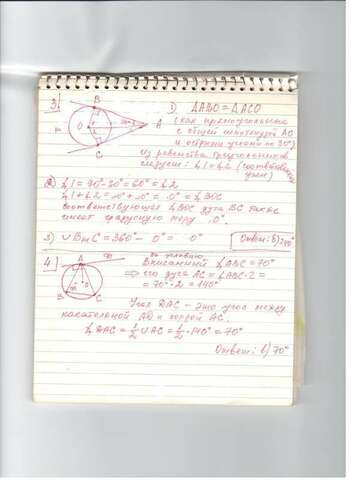 3)
1) ΔABO = ΔACO
(как прямоугольные
с общей гипотенузой AO
и острыми углами по 30°)
Из равенства треугольников
следует: ∠1 = ∠2
B
O
A
C
2) ∠1 = 90° - 30° = 60° = ∠2
∠1 + ∠2 = 0° + 0° = 0° = ∠BOC
Соответствующая ∠BOC дуга BC также
имеет градусную меру 0°.
3) ∪BmC = 360° - 0° = 0°
Ответ: в) 240°
4)
по условию
Вписанный ∠ABC = 70°
⇒ его дуга AC = ∠ABC · 2 =
= 70° · 2 = 140°
A
B
C
Угол DAC - это угол между
касательной AD и хордой AC.
∠DAC = 1/2 ∪AC = 1/2 · 140° = 70°
Ответ: в) 70°